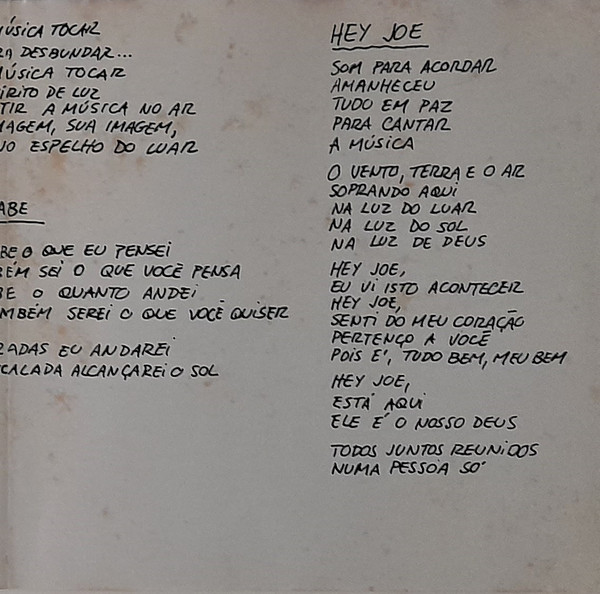 MÚSICA TOCAR
DESBUNDAR...
MÚSICA TOCAR
DE LUZ
A MÚSICA NO AR
SUA IMAGEM,
NO ESPELHO DO LUAR
ABE
BE O QUE EU PENSEI
BÉM SEI O QUE VOCÊ PENSA
BE O QUANTO ANDEI
MBÉM SEREI O QUE VOCÊ QUISER
RADAS EU ANDAREI
CALADA ALCANÇAREI O SOL
HEY JOE
SOM PARA ACORDAR
AMANHECEU
TUDO EM PAZ
PARA CANTAR
A MÚSICA
O VENTO, TERRA E O AR
SOPRANDO AQUI
NA LUZ DO LUAR
NA LUZ DO SOL
NA LUZ DE DEUS
HEY JOE,
EU VI ISTO ACONTECER
HEY JOE,
SENTI DO MEU CORAÇÃO
PERTENÇO A VOCÊ
POIS É, TUDO BEM, MEU BEM
HEY JOE,
ESTÁ AQUI
ELE É O NOSSO DEUS
TODOS JUNTOS REUNIDOS
NUMA PESSOA SÓ